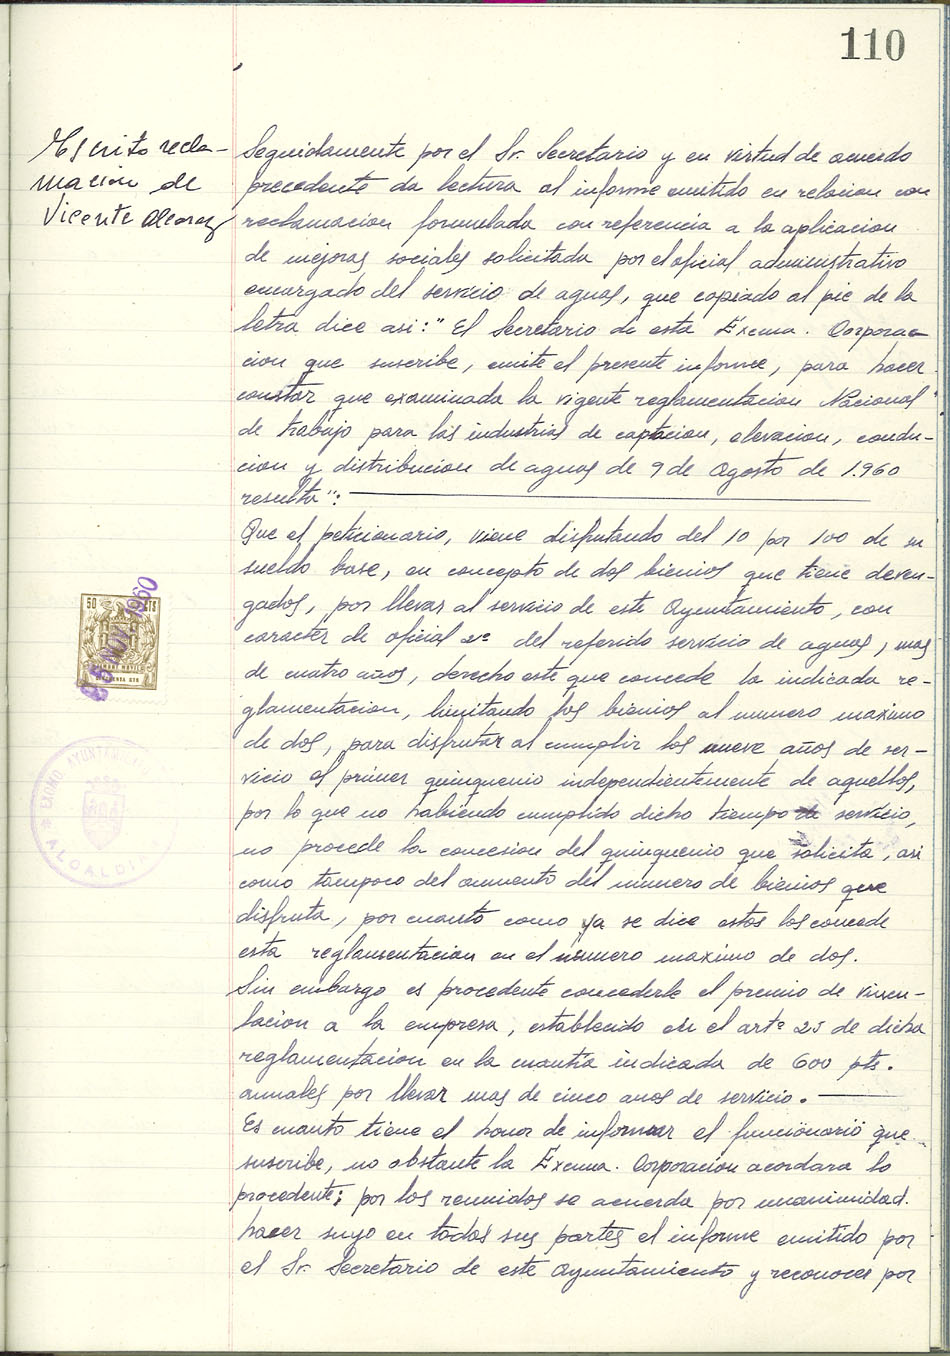 110
Escrito recla-
macion de
Vicente Alcaraz
Seguidamente por el Sr. Secretario y en virtud de acuerdo
precedente da lectura al informe emitido en relacion con
reclamacion formulada con referencia a la aplicacion
de mejoras sociales solicitada por el oficial administrativo
encargado del servicio de aguas, que copiado al pie de la
letra dice asi: "El Secretario de esta Excma. Corpora-
cion que suscribe, emite el presente informe, para hacer
constar que examinada la vigente reglamentacion Nacional
de trabajo para las industrias de captacion, elevacion, condu-
cion y distribucion de aguas de 9 de Agosto de 1.960
resulta":
Que el peticionario, viene disfrutando del 10 por 100 de su
sueldo base, en concepto de dos bienios que tiene deven-
gados, por llevar al servicio de este Ayuntamiento, con
caracter de oficial 2º del referido servicio de aguas, mas
de cuatro años, derecho este que concede la indicada re-
glamentacion, limitando los bienios al numero maximo
de dos, para disfrutar al cumplir los nueve años de ser-
vicio el primer quinquenio independientemente de aquellos,
por lo que no habiendo cumplido dicho tiempo de servicio,
no procede la concesion del quinquenio que solicita, asi
como tampoco del aumento del numero de bienios que
disfruta, por cuanto como ya se dice estos los concede
esta reglamentacion en el numero maximo de dos.
Sin embargo es procedente concederle el premio de vincu-
lacion a la empresa, establecido en el artº 25 de dicha
reglamentacion en la cuantia indicada de 600 pts.
anuales por llevar mas de cinco anos de servicio.
Es cuanto tiene el honor de informar el funcionario que
suscribe, no obstante la Excma. Corporacion acordara lo
procedente; por los reunidos se acuerda por unanimidad.
hacer suyo en todas sus partes el informe emitido por
el Sr. Secretario de este Ayuntamiento y reconocer por
50 CTS
5 NOV 1960
EXCMO AYUNTAMIENTO
ALCALDIA